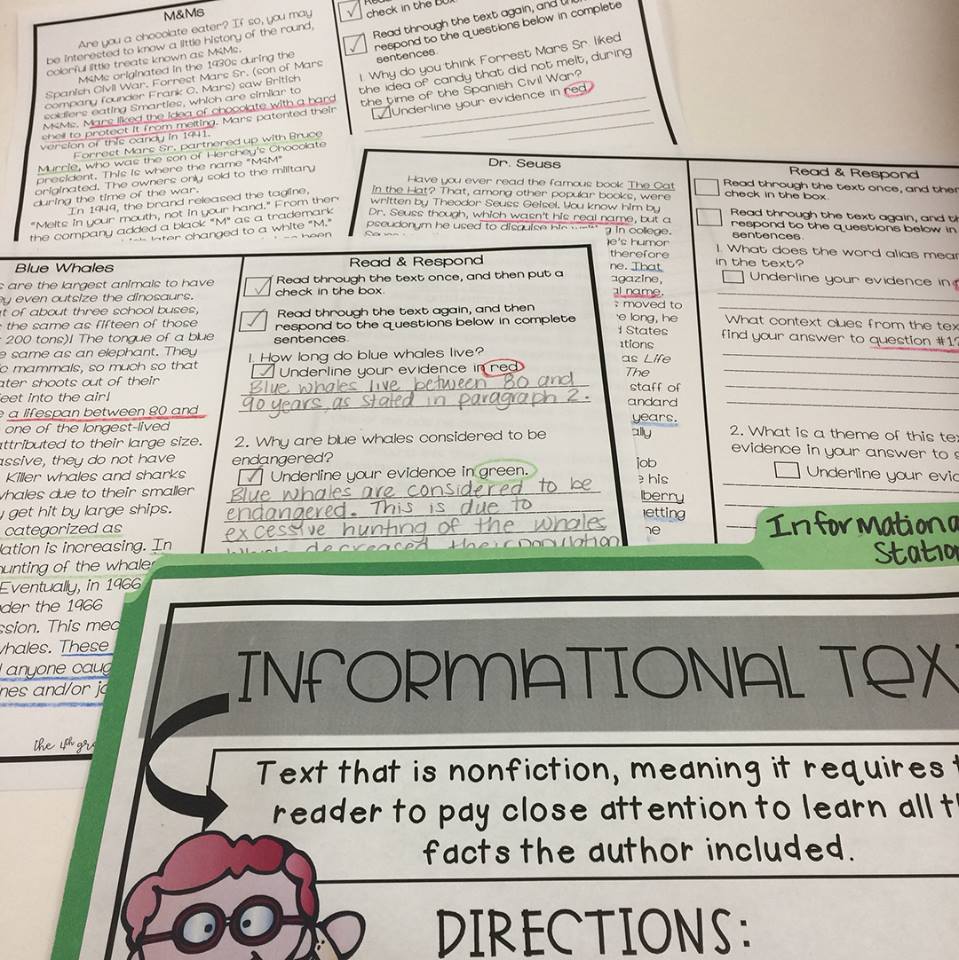 M&Ms
Are you a chocolate eater? If so, you may
be interested to know a little history of the round,
colorful little treats known as M&Ms.
M&Ms originated in the 1930s during the
Spanish Civil War. Forrest Mars Sr. (son of Mars
company founder Frank C. Mars) saw British
soldiers eating Smarties, which are similar to
M&Ms. Mars liked the idea of chocolate with a hard
shell to protect it from melting. Mars patented their
version of this candy in 1941.
Forrest Mars Sr. partnered up with Bruce
Murrie, who was the son of Hershey's Chocolate
president. This is where the name "M&M"
originated. The owners only sold to the military
during the time of the war.
In 1949, the brand released the tagline,
"Melts in your mouth, not in your hand." From then
the company added a black "M" as a trademark
later changed to a white "M."
been
check in the box.
Read through the text again, and then
respond to the questions below in complete
sentences.
1. Why do you think Forrest Mars Sr. liked
the idea of candy that did not melt, during
the time of the Spanish Civil War?
Underline your evidence in red
Dr. Seuss
Have you ever read the famous book The Cat
In the Hat? That, among other popular books, were
written by Theodor Seuss Geisel. You know him by
Dr. Seuss though, which wasn't his real name, but a
pseudonym he used to disguise his
in college.
humor
therefore
ne. That
agazine,
al name,
moved to
long, he
States
ations
as Life
The
staff of
andard
years.
ally
job
his
lberry
etting
he
Read & Respond
Read through the text once, and then
check in the box.
Read through the text again, and th
respond to the questions below in
sentences.
1. What does the word alias mean
in the text?
Underline your evidence in
What context clues from the tex
find your answer to question #1?
2. What is a theme of this te
evidence in your answer to s
Underline your evid
Blue Whales
are the largest animals to have
even outsize the dinosaurs.
of about three school buses,
the same as fifteen of those
200 tons)! The tongue of a blue
same as an elephant. They
mammals, so much so that
ater shoots out of their
feet into the air!
a lifespan between 80 and
one of the longest-lived
attributed to their large size.
assive, they do not have
Killer whales and sharks
whales due to their smaller
get hit by large ships.
categorized as
lation is increasing. In
hunting of the whales
Eventually, in 1966
der the 1966
ssion. This mec
whales. These
anyone caug
nes and/or ja
the 4th gr
Read & Respond
Read through the text once, and then put a
check in the box.
Read through the text again, and then
respond to the questions below in complete
sentences.
1. How long do blue whales live?
Underline your evidence in red
Blue whales live between 80 and
90 years, as stated in paragraph 2.
2. Why are blue whales considered to be
endangered?
Underline your evidence in green.
Blue Whales are considered to be
endangered. This is due to
excessive hunting of the whales
decreased their population
Informationa
Station
INFORMATIONAL TEX
Text that is nonfiction, meaning it requires t
reader to pay close attention to learn all th
facts the author included.
DIRECTIONS: